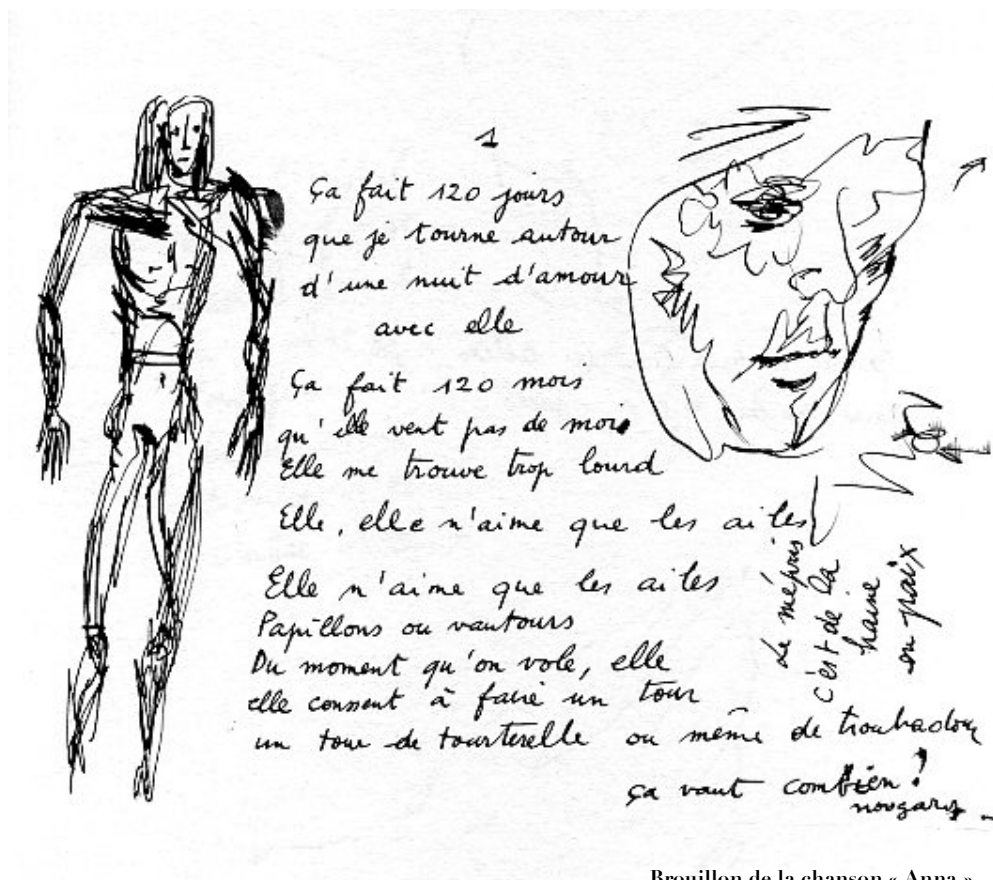 1
Ça fait 120 jours
que je tourne autour
d'une nuit d'amour
avec elle
Ça fait 120 mois
qu'elle veut pas de moi
Elle me trouve trop lourd
Elle, elle n'aime que les ailes
Elle n'aime que les ailes
Papillons ou vautours
Du moment qu'on vole, elle
elle consent à faire un tour
un tour de tourterelle ou même de troubadour
ça vaut combien !
nougaro
Le mépris
c'est de la
haine
en paix
Brouillon de la chanson « Anna »